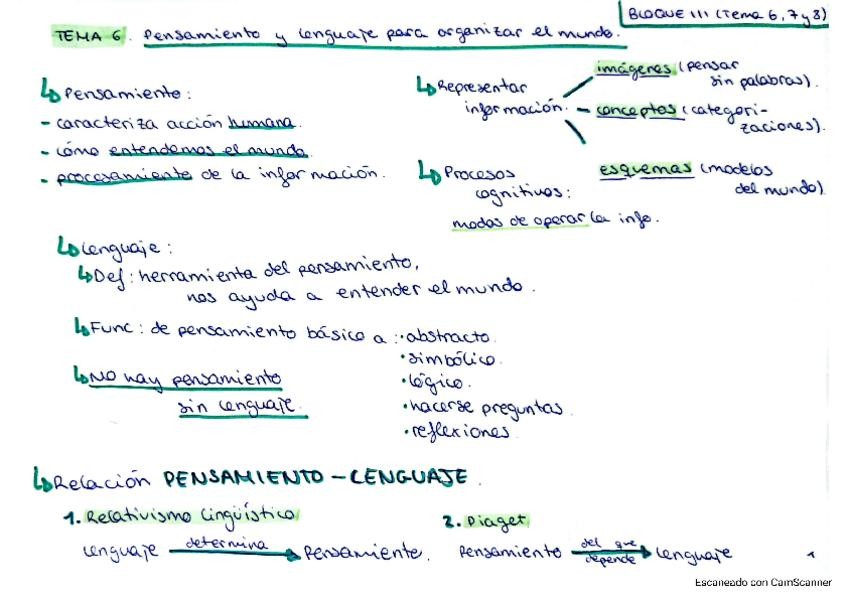 BLOQUE III (Tema 6, 7 y 8)
TEMA 6. Pensamiento y lenguaje para organizar el mundo.
Pensamiento:
- caracteriza acción humana.
- cómo entendemos el mundo.
- procesamiento de la información.
Representar
información.
imágenes (pensar
sin palabras).
- conceptos (categori-
zaciones).
esquemas (modelos
del mundo)
Procesos
cognitivos:
modos de operar la info.
Lenguaje:
Def: herramienta del pensamiento,
nos ayuda a entender el mundo.
Func: de pensamiento básico a: · abstracto.
· simbólico.
· lógico.
· hacerse preguntas.
· reflexiones
No hay pensamiento
sin lenguaje.
Relación PENSAMIENTO - LENGUAJE.
1. Relativismo lingüístico
lenguaje determina Pensamiento.
2. Piaget
Pensamiento del que depende lenguaje
1
Escaneado con CamScanner